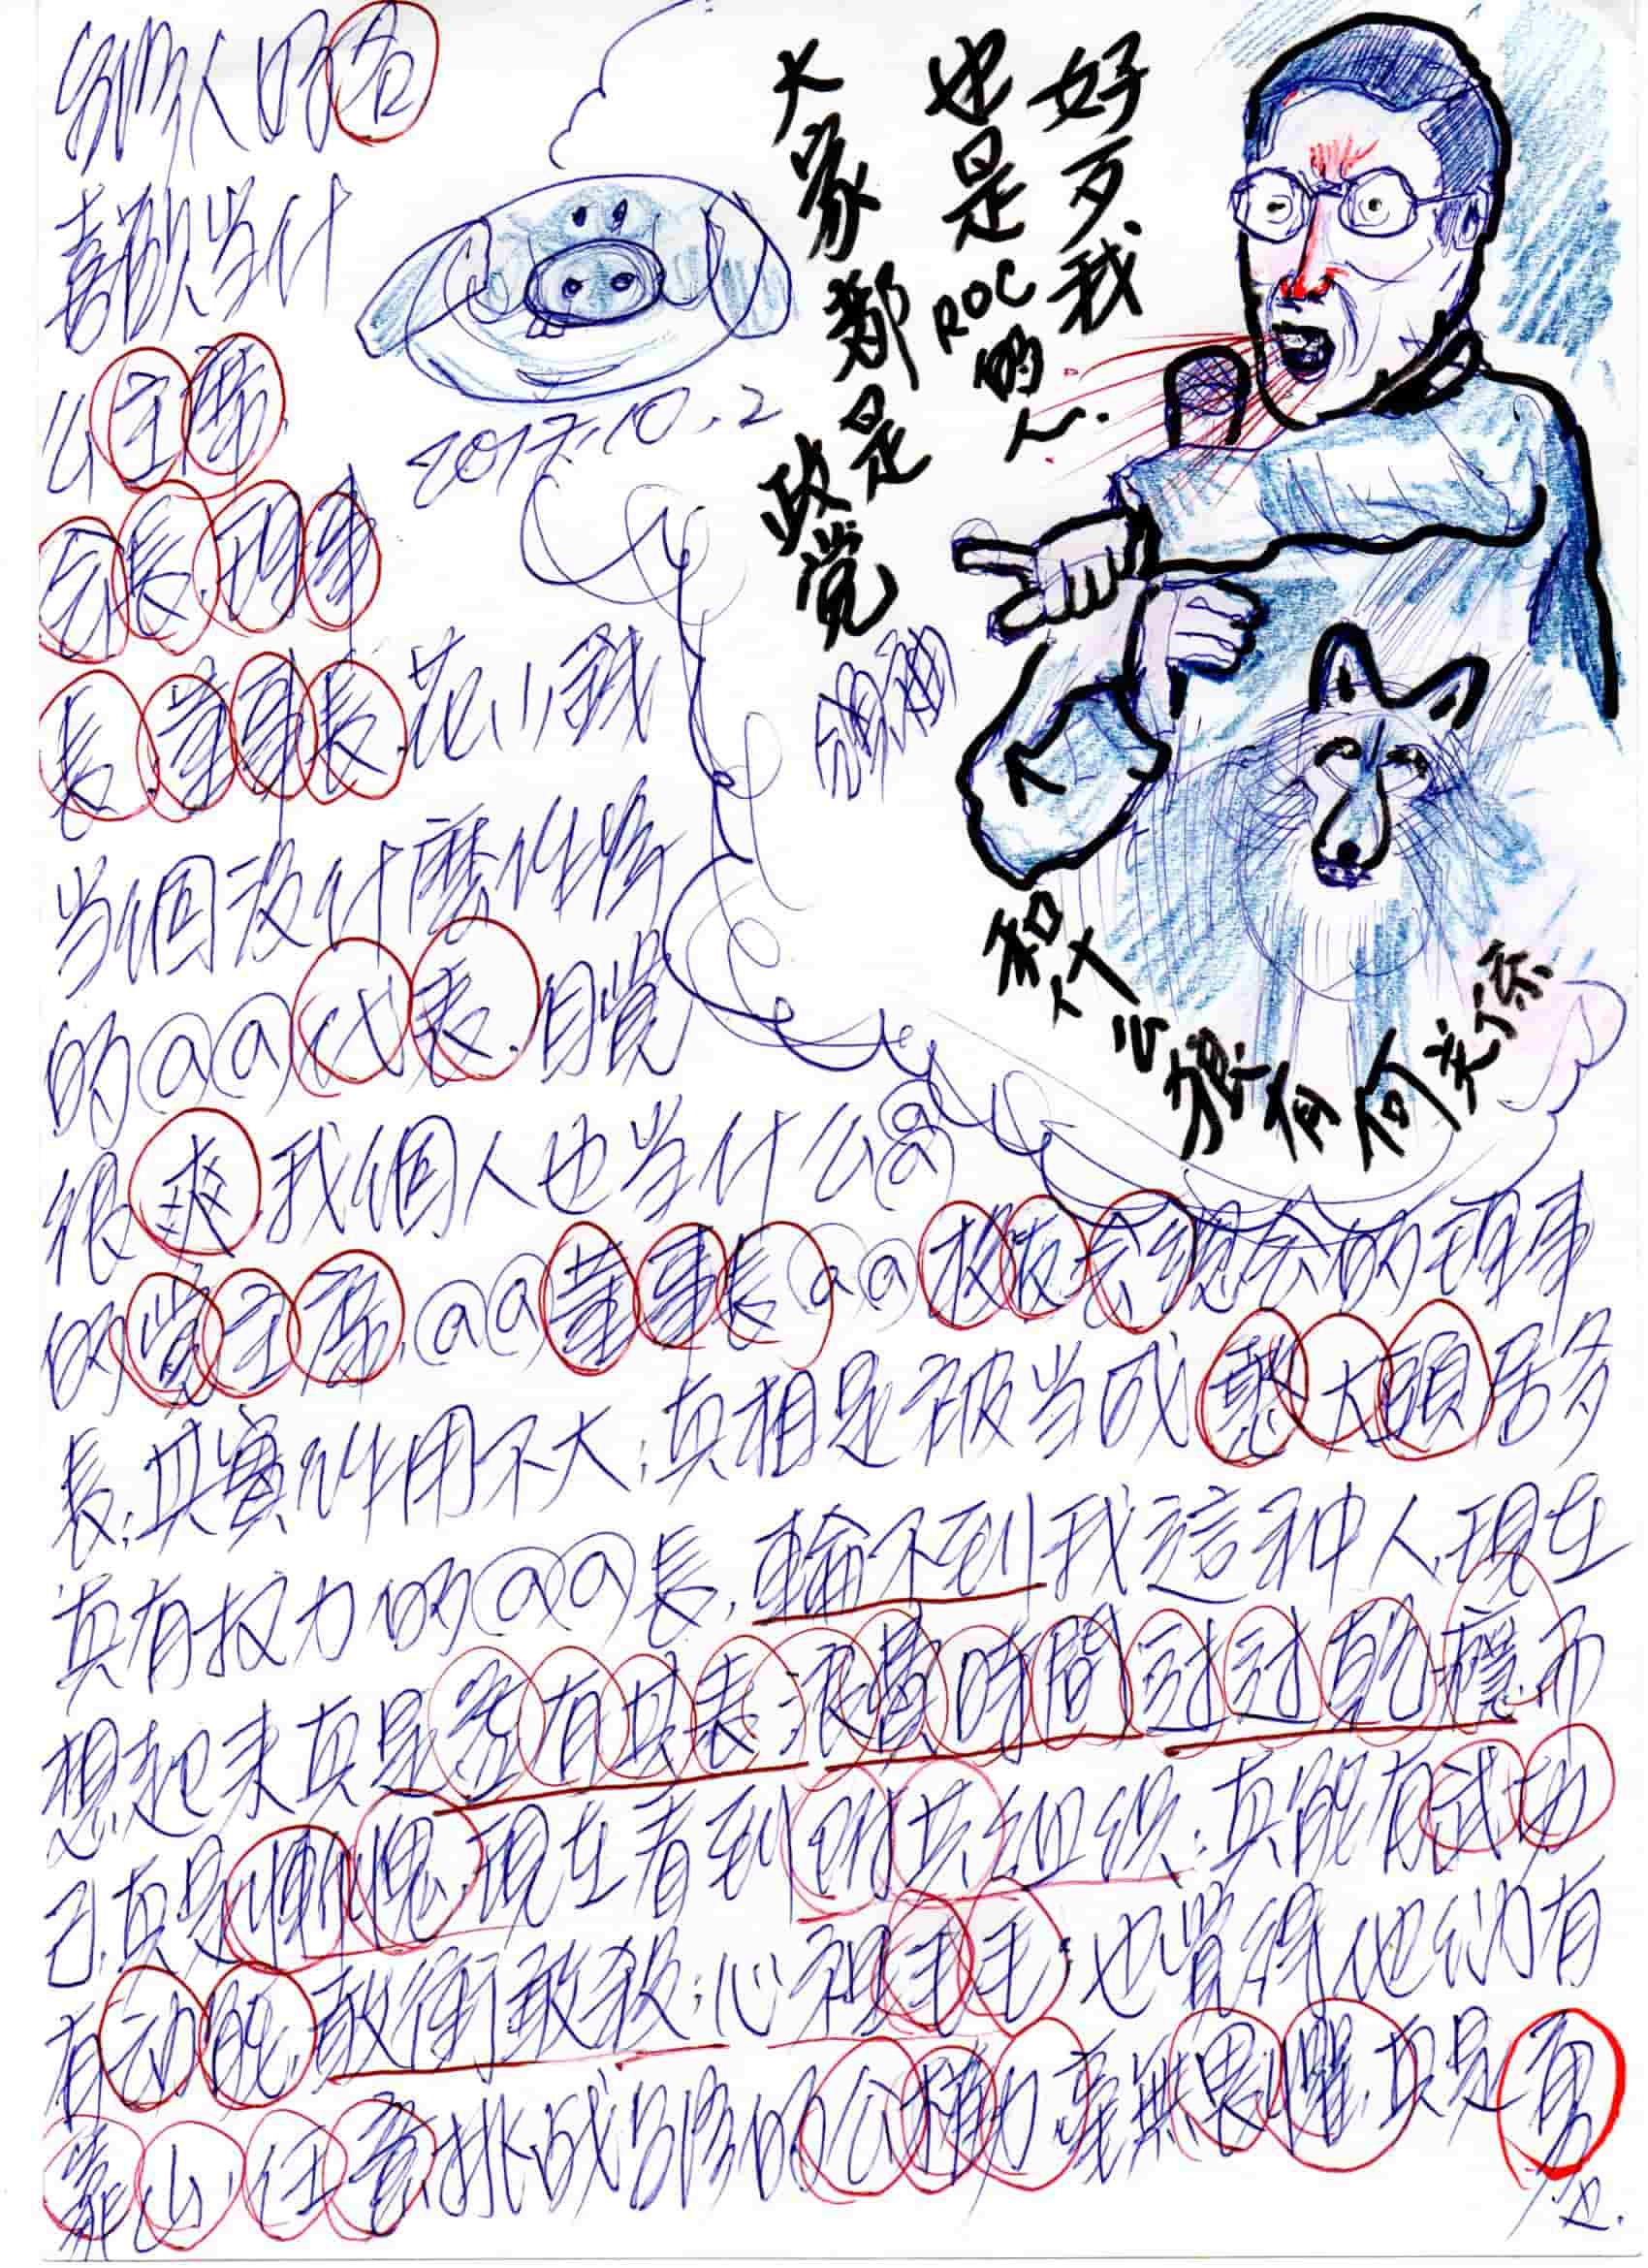 好歹、我
也是ROC的人.
大家都是
政党
和什么狼有何关係
2017.10.2
別人的君
喜歡当什
么主席.
会長.理事
長.董事長.花小錢
当個沒什麼作為
的@@代表.自覺
很爽.我個人也当什么@@
的党主席.@@董事長@@校友会總会的理事
長;其實作用不大;真相是被当成憨大頭居多
真有权力的@@長.輪不到我這种人.現在
想起来真是空有其表.浪費時間過過乾癮而
己.真是慚愧.現在看到附共組織;真能有武功
有动能.敢衝敢殺;心裡毛毛;也覺得他們有
靠山.任意挑战台灣的公權力毫無畏懼.真是勇
也.